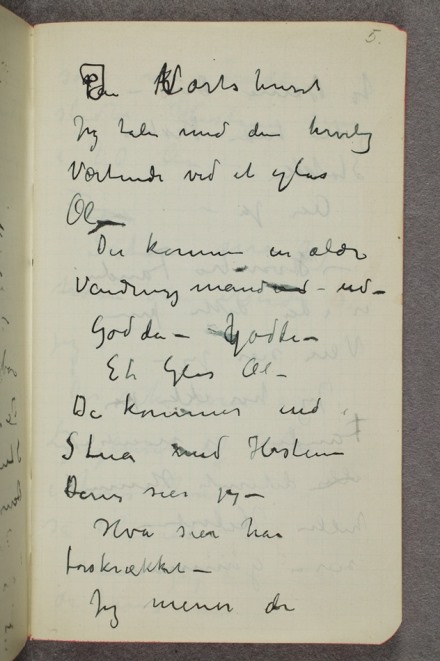 5.
Paa Vertshuset
Jeg taler med den
Vertinde ved et glas
Øl –
Der kommer en ældre
Vandringsmand – ind –
Goddag – Goddag –
Et Glas Øl –
De kommer ind i
Stua med Hesten
Deres sier jeg –
Hva sier han
forskrækket –
Jeg mener der